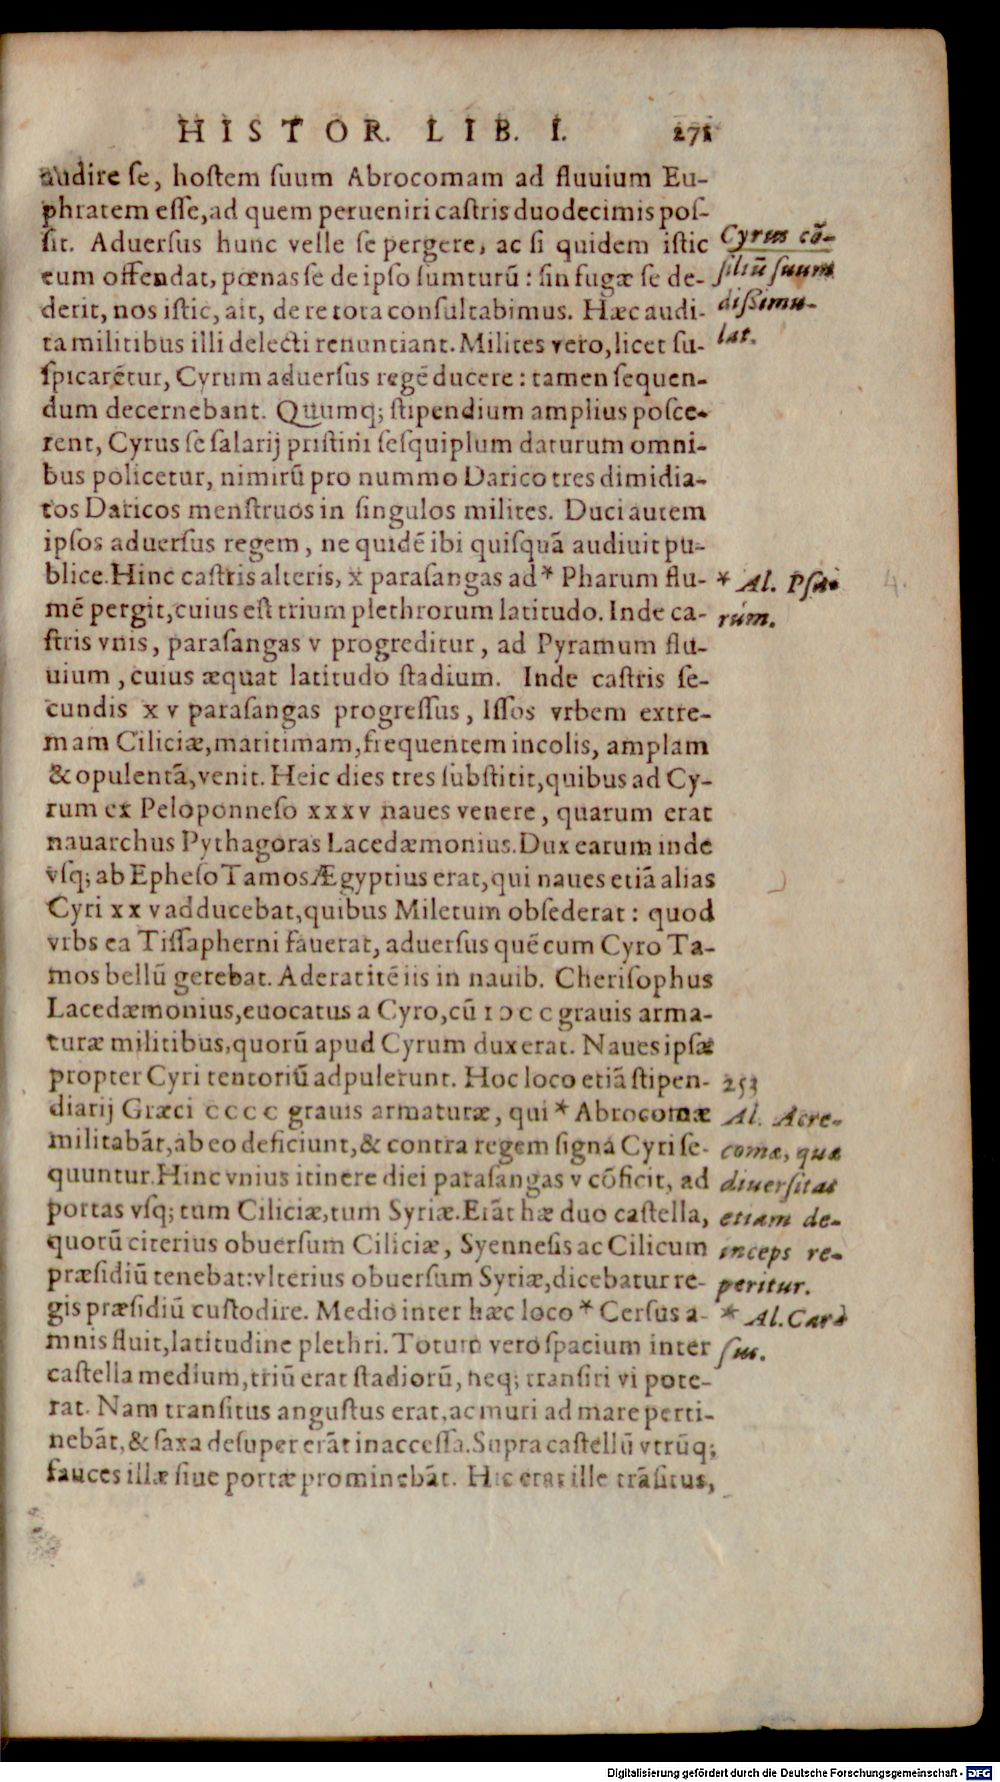 HISTOR. LIB. I. 271
audire se, hostem suum Abrocomam ad fluuium Eu-
phratem esse, ad quem perueniri castris duodecimis pos-
sit. Aduersus hunc velle se pergere, ac si quidem istic
eum offendat, pœnas se de ipso sumturũ: sin fugæ se de-
derit, nos istic, ait, de re tota consultabimus. Hæc audi-
ta militibus illi delecti renuntiant. Milites vero, licet su-
spicarẽtur, Cyrum aduersus regẽ ducere: tamen sequen-
dum decernebant. Quumq; stipendium amplius posce-
rent, Cyrus se salarij pristini sesquiplum daturum omni-
bus policetur, nimirũ pro nummo Darico tres dimidia-
tos Daricos menstruos in singulos milites. Duci autem
ipsos aduersus regem, ne quidẽ ibi quisquã audiuit pu-
blice. Hinc castris alteris, x parasangas ad * Pharum flu-
mẽ pergit, cuius est trium plethrorum latitudo. Inde ca-
stris vnis, parasangas v progreditur, ad Pyramum flu-
uium, cuius æquat latitudo stadium. Inde castris se-
cundis xv parasangas progressus, Issos vrbem extre-
mam Ciliciæ, maritimam, frequentem incolis, amplam
& opulentã, venit. Heic dies tres substitit, quibus ad Cy-
rum ex Peloponneso xxxv naues venere, quarum erat
nauarchus Pythagoras Lacedæmonius. Dux earum inde
vsq; ab Epheso Tamos Ægyptius erat, qui naues etiã alias
Cyri xxv adducebat, quibus Miletum obsederat: quod
vrbs ea Tissapherni fauerat, aduersus quẽ cum Cyro Ta-
mos bellũ gerebat. Aderat itẽ iis in nauib. Cherisophus
Lacedæmonius, euocatus a Cyro, cũ IↃCC grauis arma-
turæ militibus, quorũ apud Cyrum dux erat. Naues ipsæ
propter Cyri tentoriũ adpulerunt. Hoc loco etiã stipen-
diarij Græci CCCC grauis armaturæ, qui * Abrocomæ
militabãt, ab eo deficiunt, & contra regem signa Cyri se-
quuntur. Hinc vnius itinere diei parasangas v cõficit, ad
portas vsq; tum Ciliciæ, tum Syriæ. Erãt hæ duo castella,
quorũ citerius obuersum Ciliciæ, Syennesis ac Cilicum
præsidiũ tenebat: vlterius obuersum Syriæ, dicebatur re-
gis præsidiũ custodire. Medio inter hæc loco * Cersus a-
mnis fluit, latitudine plethri. Totum vero spacium inter
castella medium, triũ erat stadiorũ, neq; transiri vi pote-
rat. Nam transitus angustus erat, ac muri ad mare perti-
nebãt, & saxa desuper erãt inaccessa. Supra castellũ vtrũq;
fauces illæ siue portæ prominebãt. Hic erat ille trãsitus,
Cyrus cõ-
siliũ suum
dissimu-
lat.
* Al. Psa-
rum.
4.
253
Al. Acre-
comæ, quæ
diuersitas
etiam de-
inceps re-
peritur.
* Al. Car-
sus.
Digitalisierung gefördert durch die Deutsche Forschungsgemeinschaft - DFG